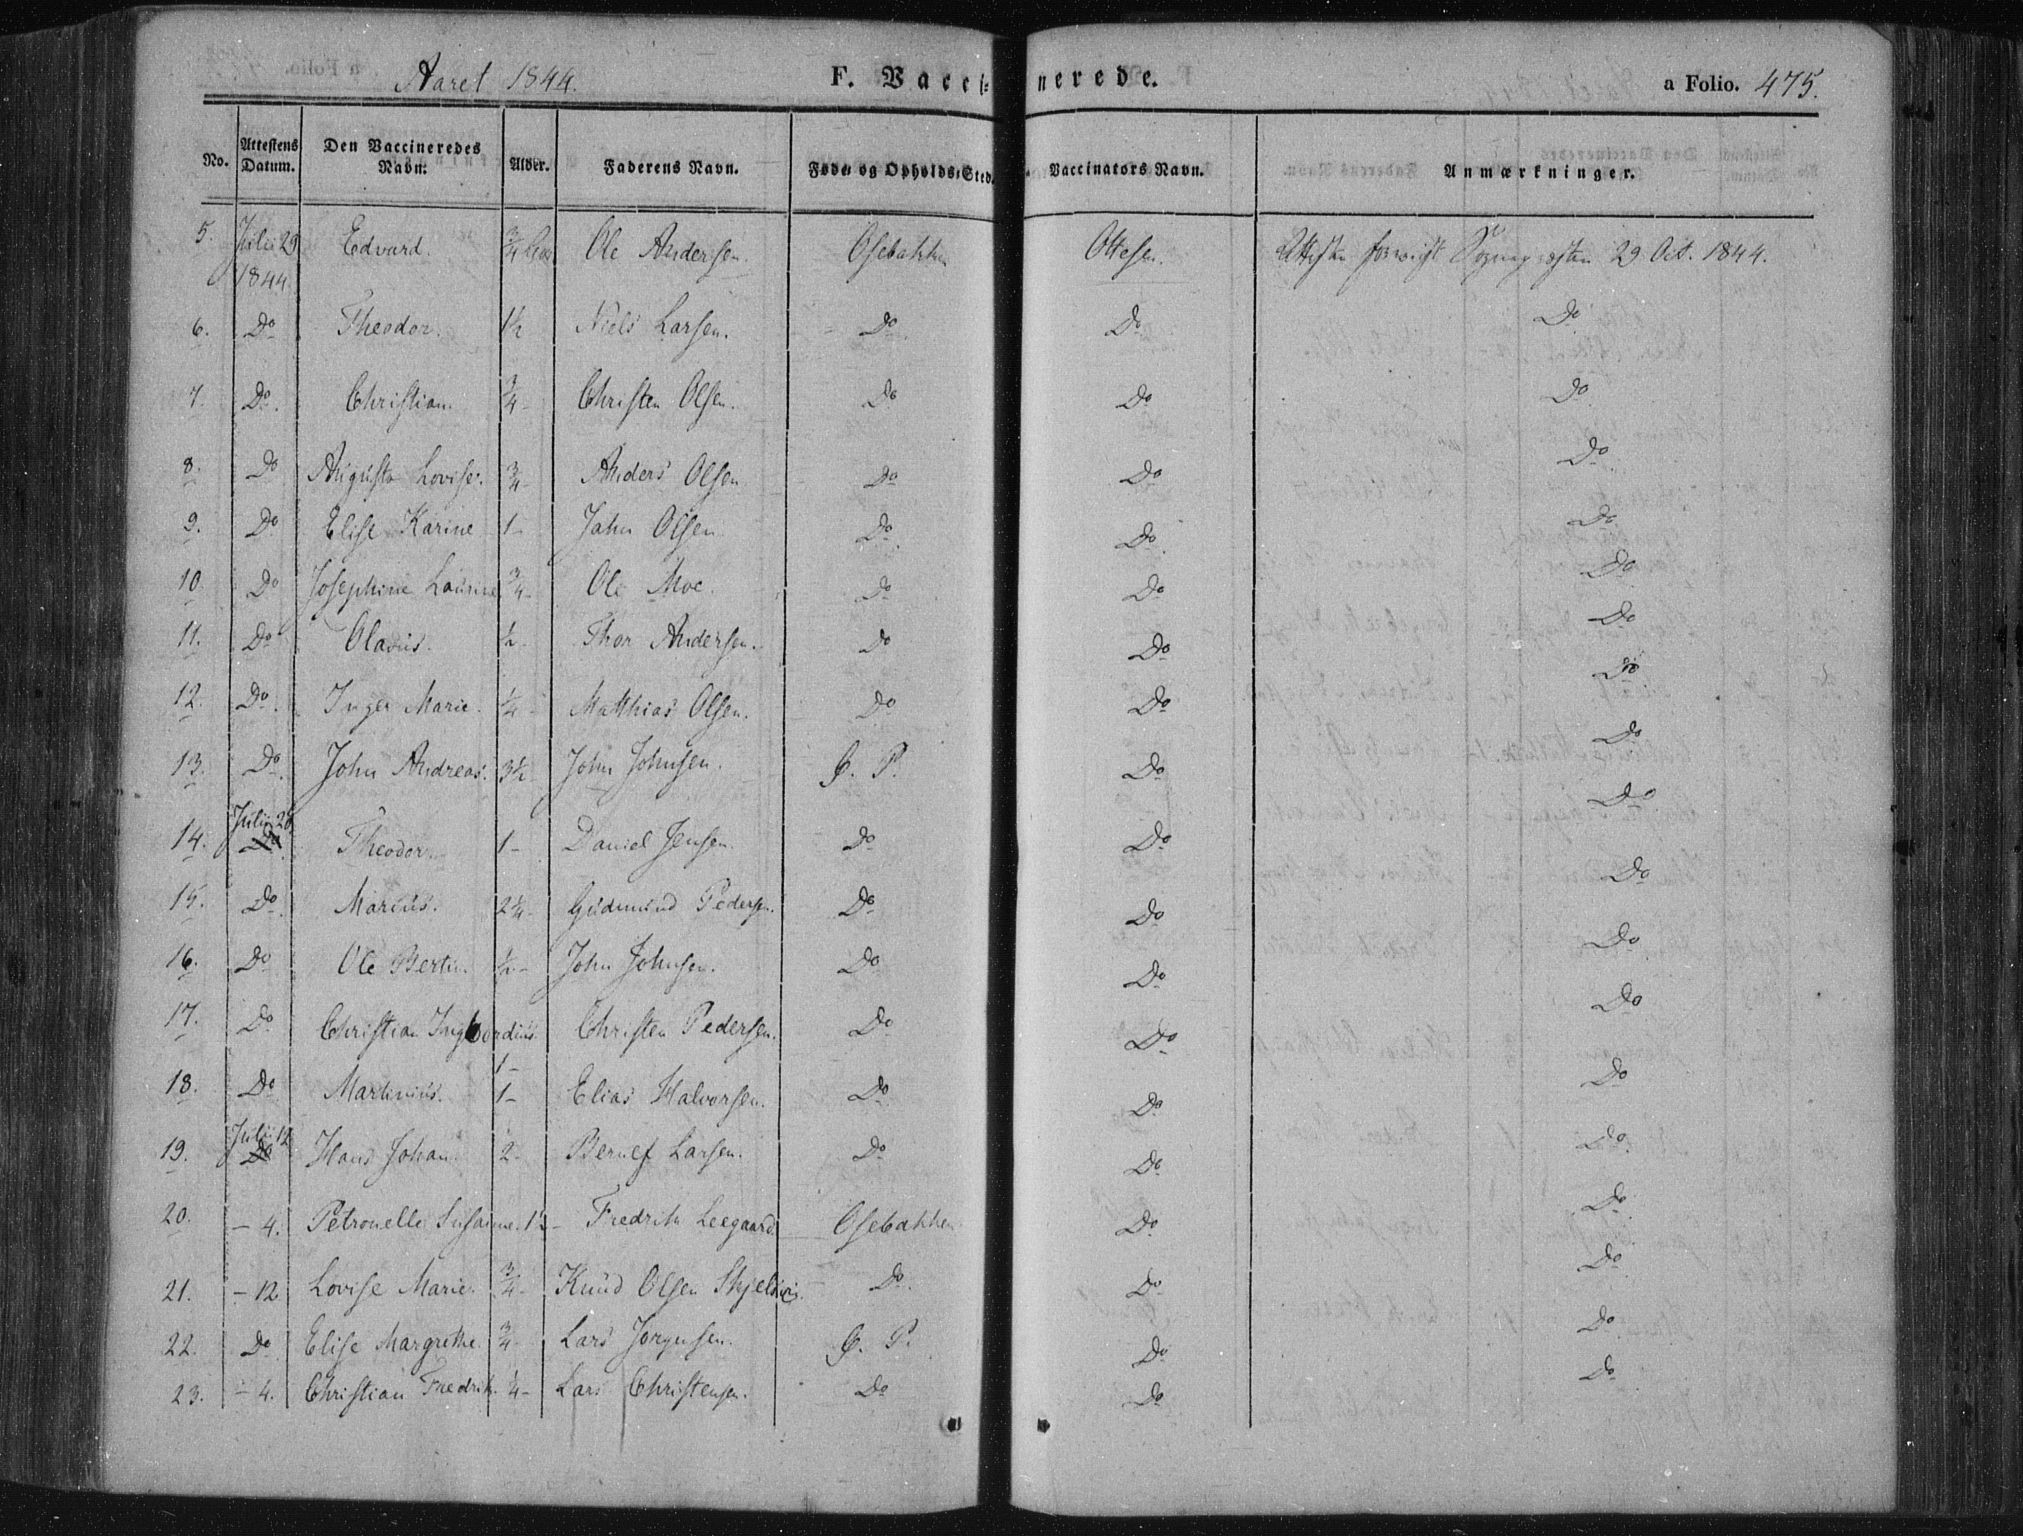 Aaret 1844. F. Vaccinerede. a Folio. 475.
No. Attestens Datum. Den Vaccineredes Navn. Alder. Faderens Navn. Føde- og Opholds-Sted. Vaccinators Navn. Anmærkninger.
5. Julii 29 1844 Edvard. 3/4 Ole Andersen. Osebakken Ottesen. 29 Oct. 1844.
6. Do Theodor. 1½ Niels Larsen. Do Do Do
7. Do. Christian. 3/4- Christen Olsen. Do Do Do
8. Do Augusta Lovise. 3/4- Anders Olsen Do Do Do
9. Do Elise Karine 1- John Olsen Do Do Do
10. Do Josephine Laurine 3/4- Ole Moe. Do Do Do
11. Do Olavus. ½- Thor Andersen. Do Do Do
12. Do. Inger Marie. ¼- Matthias Olsen. Do Do Do
13. Do John Andreas. 3½- John Johnsen. G. P. Do Do
14. Julii 26 Do Theodor. 1- Daniel Jensen. Do Do Do
15. Do Marius. 2¼- Gudmund Pedersen. Do Do Do
16. Do Ole Bertin. ½- John Johnsen. Do Do Do
17. Do Christian Ingbordius. 1- Christen Pedersen. Do Do Do
18. Do Martinius. 1- Elias Halvorsen. Do Do Do
19. Julii 12 Do Hans Johan. 2- Larsen. Do Do Do
20. - 4. Petronelle Susanne. 1½- Fredrik Leegaard. Osebakken Do Do
21. - 12 Lovise Marie. 3/4- Knud Olsen Do. Do Do
22. Do Elise Margrethe. 3/4- Lars Jorgensen. G. P. Do Do
23. - 4. Christian Fredrik. ¼- Lars Christensen. Do Do Do